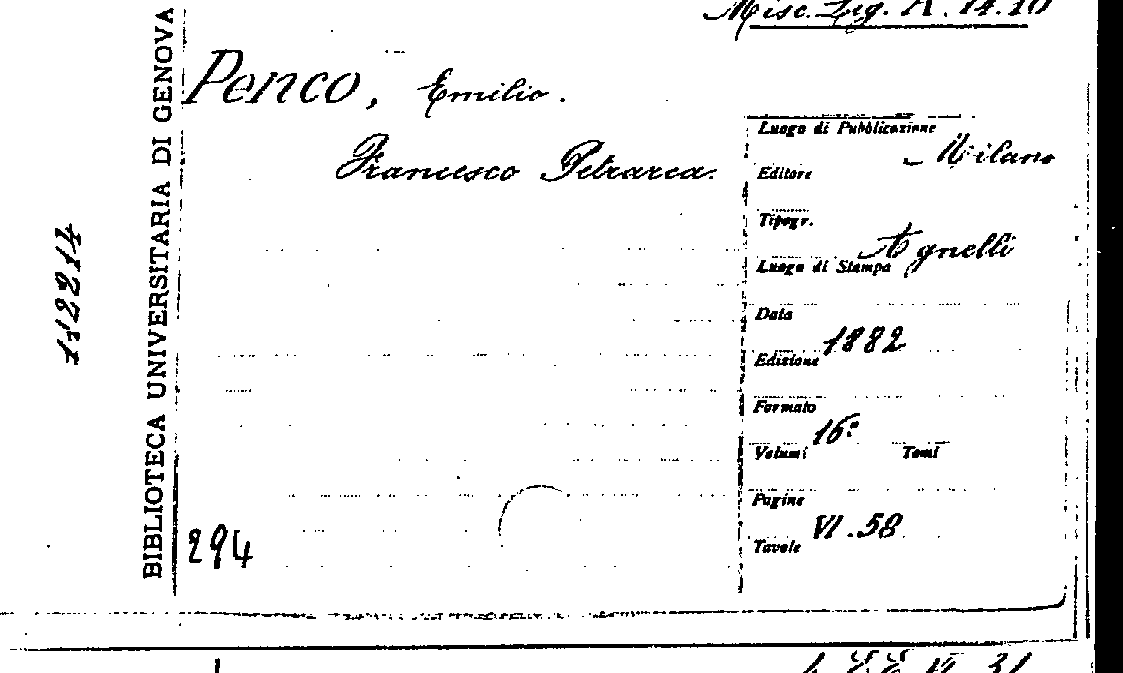 Misc. Lig. A. 14.10
Penco, Emilio.
Francesco Petrarca.
Luogo di Pubblicazione Milano
Editore
Tipogr. Agnelli
Luogo di Stampa
Data 1882
Edizione
Formato 16º
Volumi Tomi
Pagine VI.58
Tavole
BIBLIOTECA UNIVERSITARIA DI GENOVA
112214
294